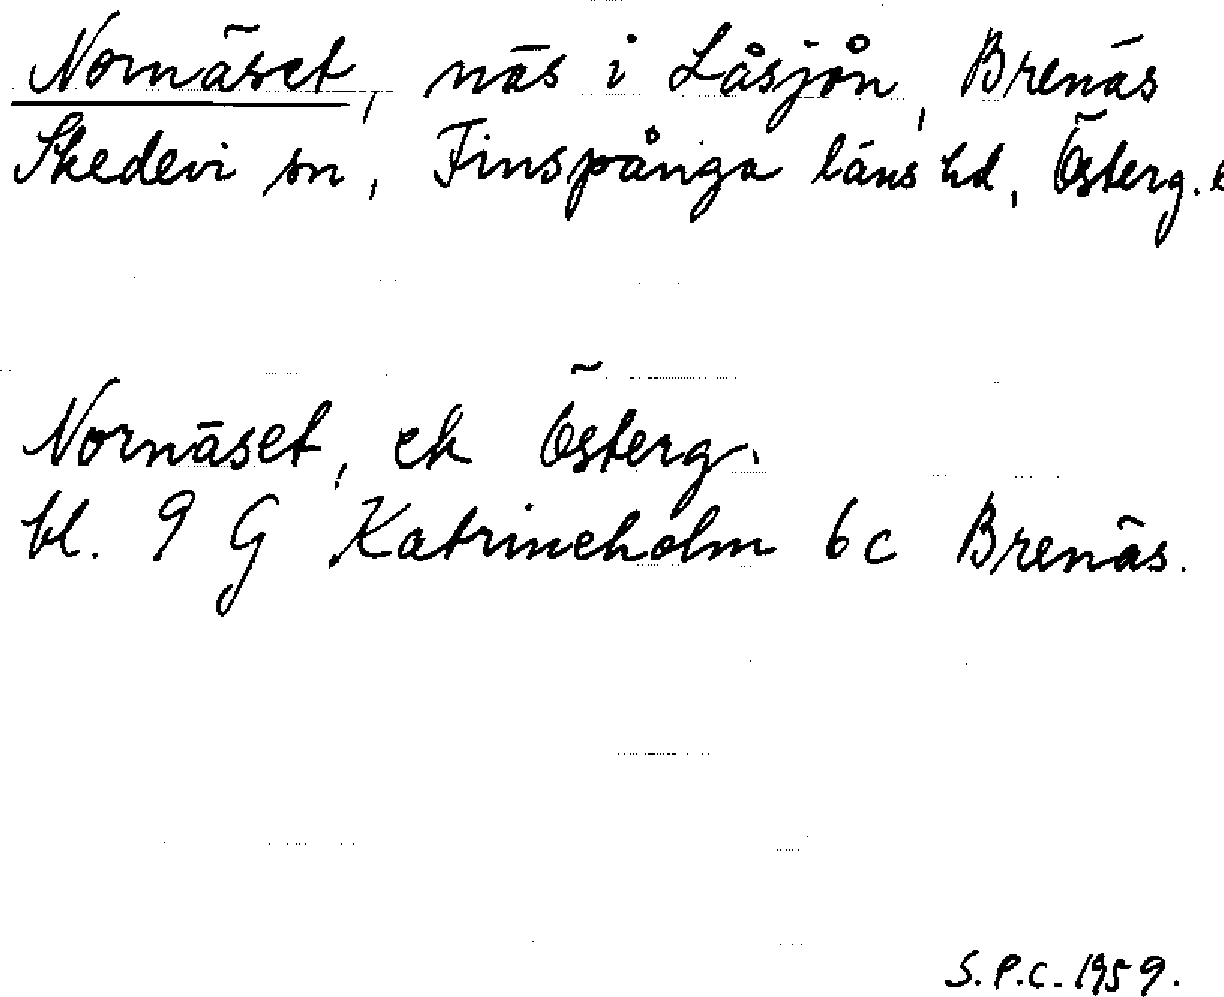 Nornäset, näs i Låsjön, Brenäs
Skedevi sn, Finspånga läns hd, Österg.
Nornäset, ek Österg.
bl. 9 G Katrineholm 6c Brenäs.
S.P.C. 1959.